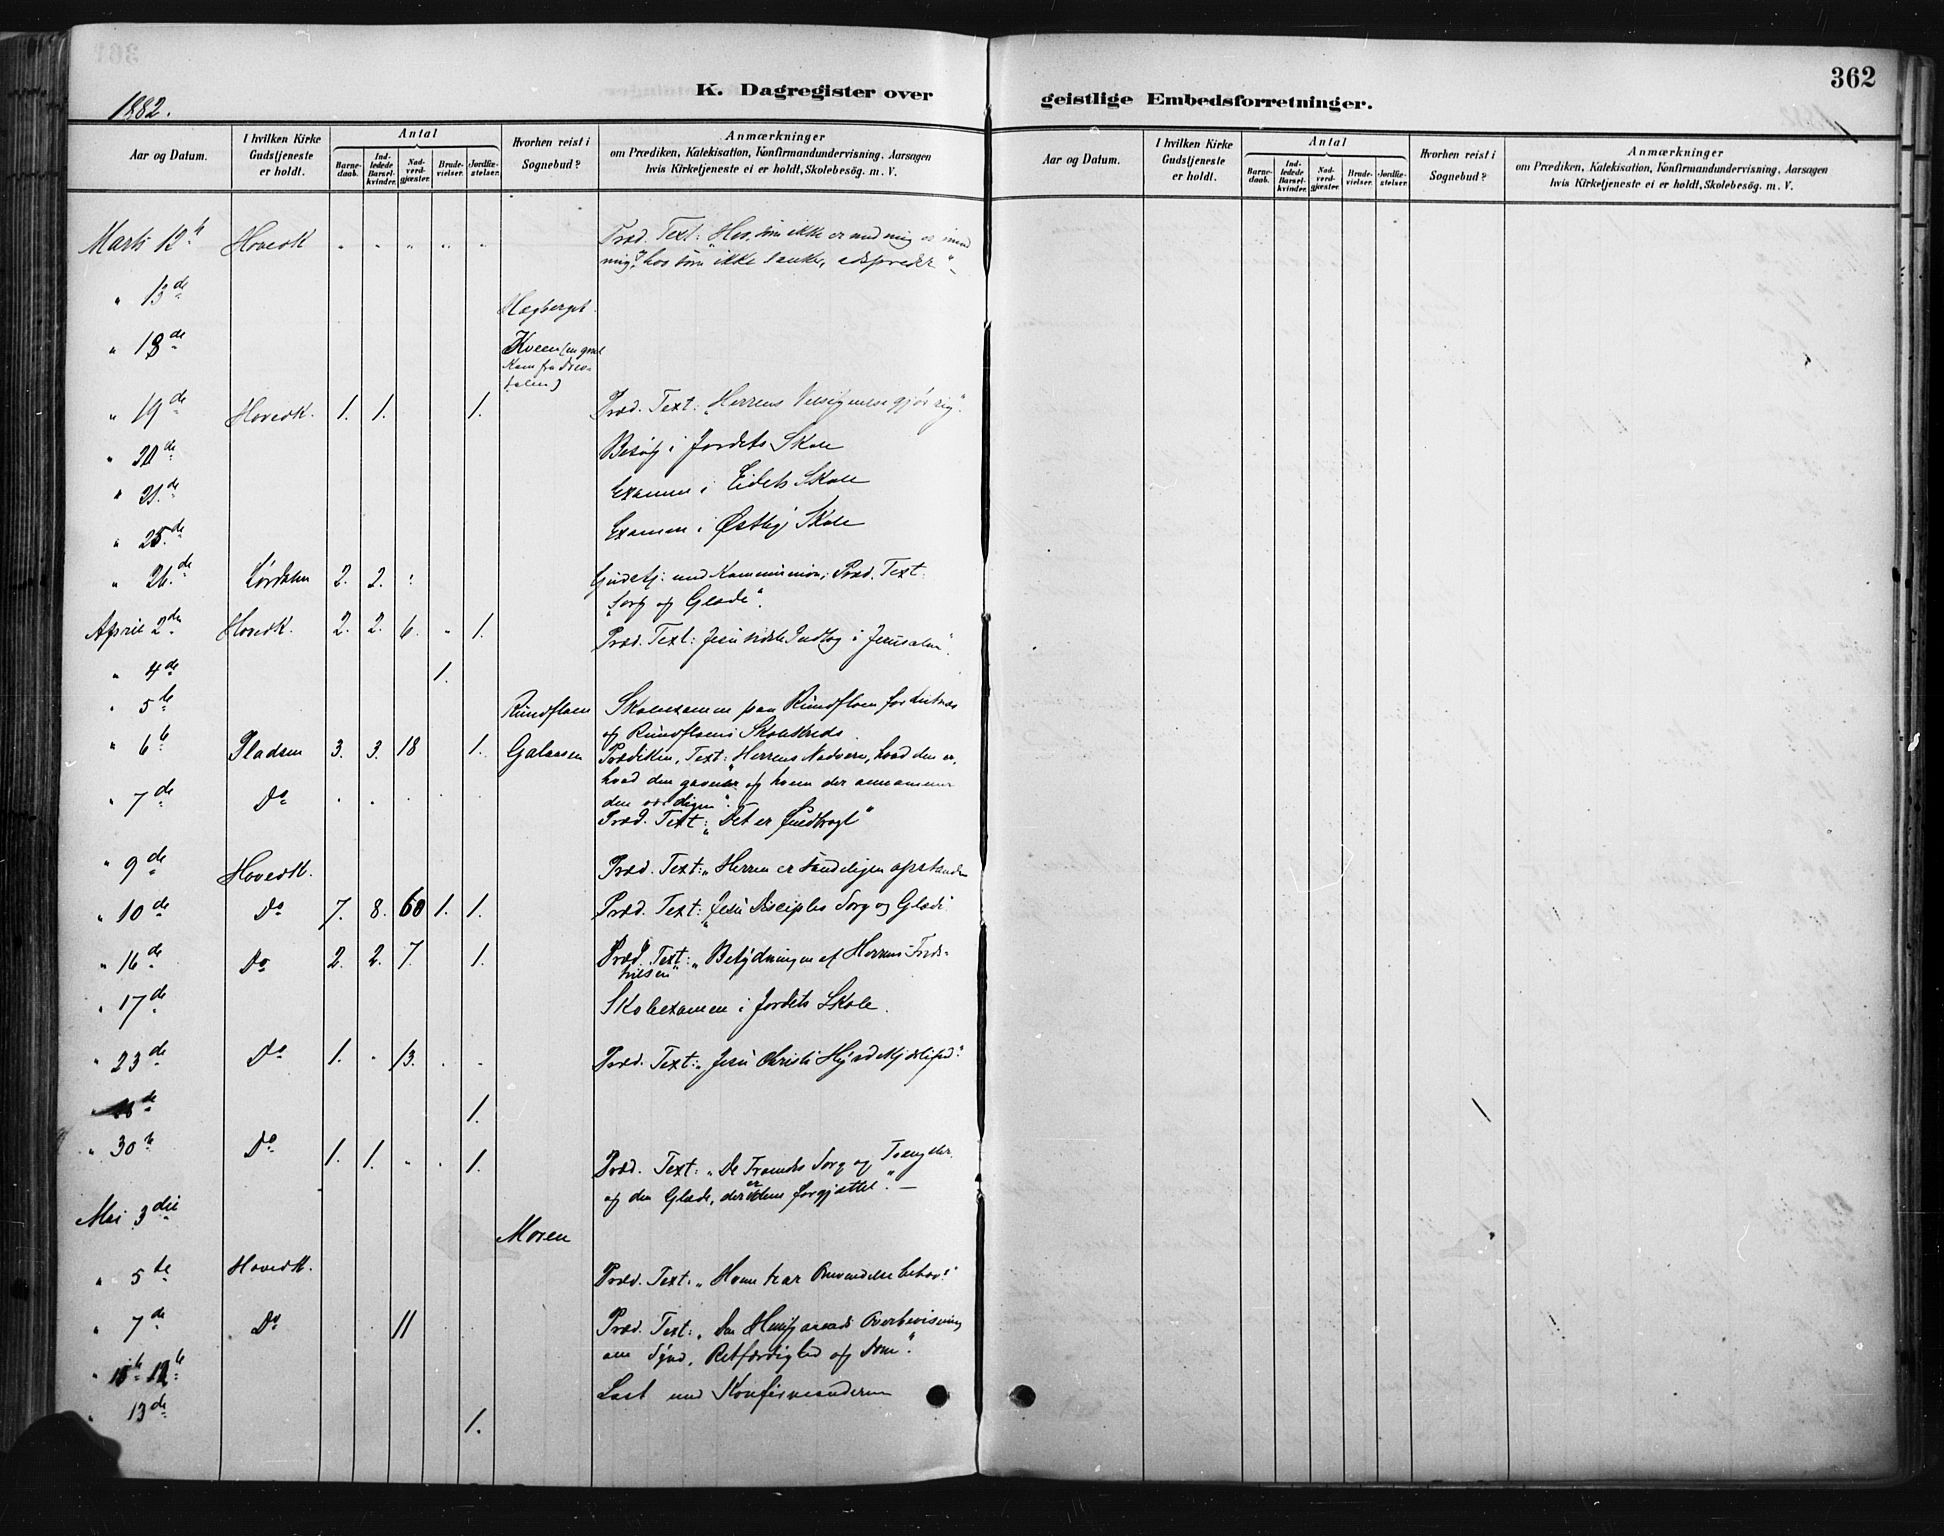 362
K. Dagregister over geistlige Embedsforretninger.
1882.
Aar og Datum. I hvilken Kirke Gudstjeneste er holdt. Antal Barnedaab. Indledede Barselkvinder. Nadverdgjæster. Brudevielser. Jordfæstelser. Hvorhen reist i Sognebud? Anmærkninger om Prædiken, Katekisation, Konfirmandundervisning, Aarsagen hvis Kirketjeneste ei er holdt, Skolebesøg. m. V.
Aar og Datum. I hvilken Kirke Gudstjeneste er holdt. Antal Barnedaab. Indledede Barselkvinder. Nadverdgjæster. Brudevielser. Jordfæstelser. Hvorhen reist i Sognebud? Anmærkninger om Prædiken, Katekisation, Konfirmandundervisning, Aarsagen hvis Kirketjeneste ei er holdt, Skolebesøg. m. V.
Marts 12te Hovedk. " " " " " Præd. Text: "Hvo, som ikke er med mig er imod
mig, hvo som ikke sanker, adspreder"
" 13de Hagberget.
" 18de Kveen
" 19de Hovedk. 1. 1. 1. Præd. Text: "Herrens Velsignelse gjør rig".
" 20de Besøg i Jordets Skole
" 21de Examen i Eidets Skole
" 25de Examen i Østby Skole
" 26de Lørdalen 2. 2. Gudstj. med Kommunion; Præd. Text:
"Sorg og Glæde".
April 2den Hovedk. 2. 2. 6. " 1. Præd. Text: Jesu sidste Indtog i Jerusalem".
" 4de 1.
" 5te Rundfloen Skolexamen paa Rundfloen for
og Rundfloens Skolekreds.
" 6te Pladsen 3. 3. 18 1. Galaasen Prædiken, Text: "Herrens Nadvere, hvad den er,
hvad den gavner og hvem der annammer
den værdigen".
" 7de Do Præd. Text: "Det er fuldbragt"
" 9de Hovedk. Præd. Text: "Herren er sandeligen opstanden
" 10de Do 7. 8. 60 1. 1. Præd. Text: "Jesu Disciples Sorg og Glæde
" 16de Do 2. 2. 7. 1. Præd. Text: "Betydningen af Herrens Freds-
hilsen"
" 17de Skolexamen i Jordets Skole.
" 23de Do 1. " 13. " " Præd. Text: "Jesu Christi Hyrdekjærlighed".
1.
" 30te Do 1. 1. " " 1. Præd. Text: "De Frommes Sorg og Trængsler
og den Glæde, der er dem forgjættet". —
Mai 3die Moren
" 5te Hovedk. Præd. Text: "Hvem har Omvendelse behov".
" 7de Do 11 Præd. Text: "Den Hellig aands Overbevisning
om Synd, Retfærdighed og Dom".
12te Læst med Konfirmanderne
" 13de 1.